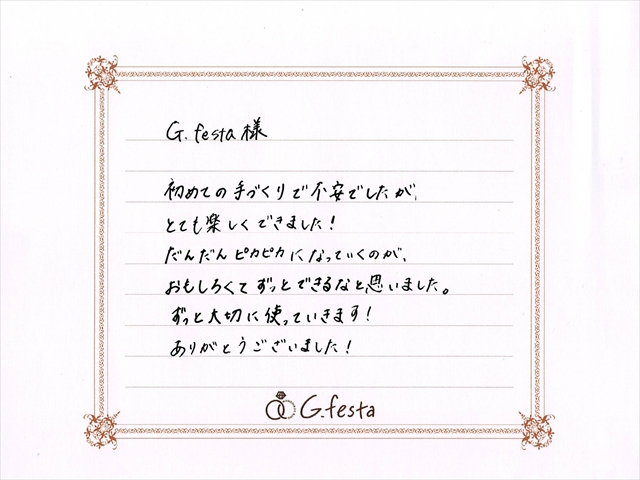 G.festa様
初めての手づくりで不安でしたが、
とても楽しくできました!
だんだんピカピカになっていくのが、
おもしろくてずっとできるなと思いました。
ずっと大切に使っていきます!
ありがとうございました!
G.festa